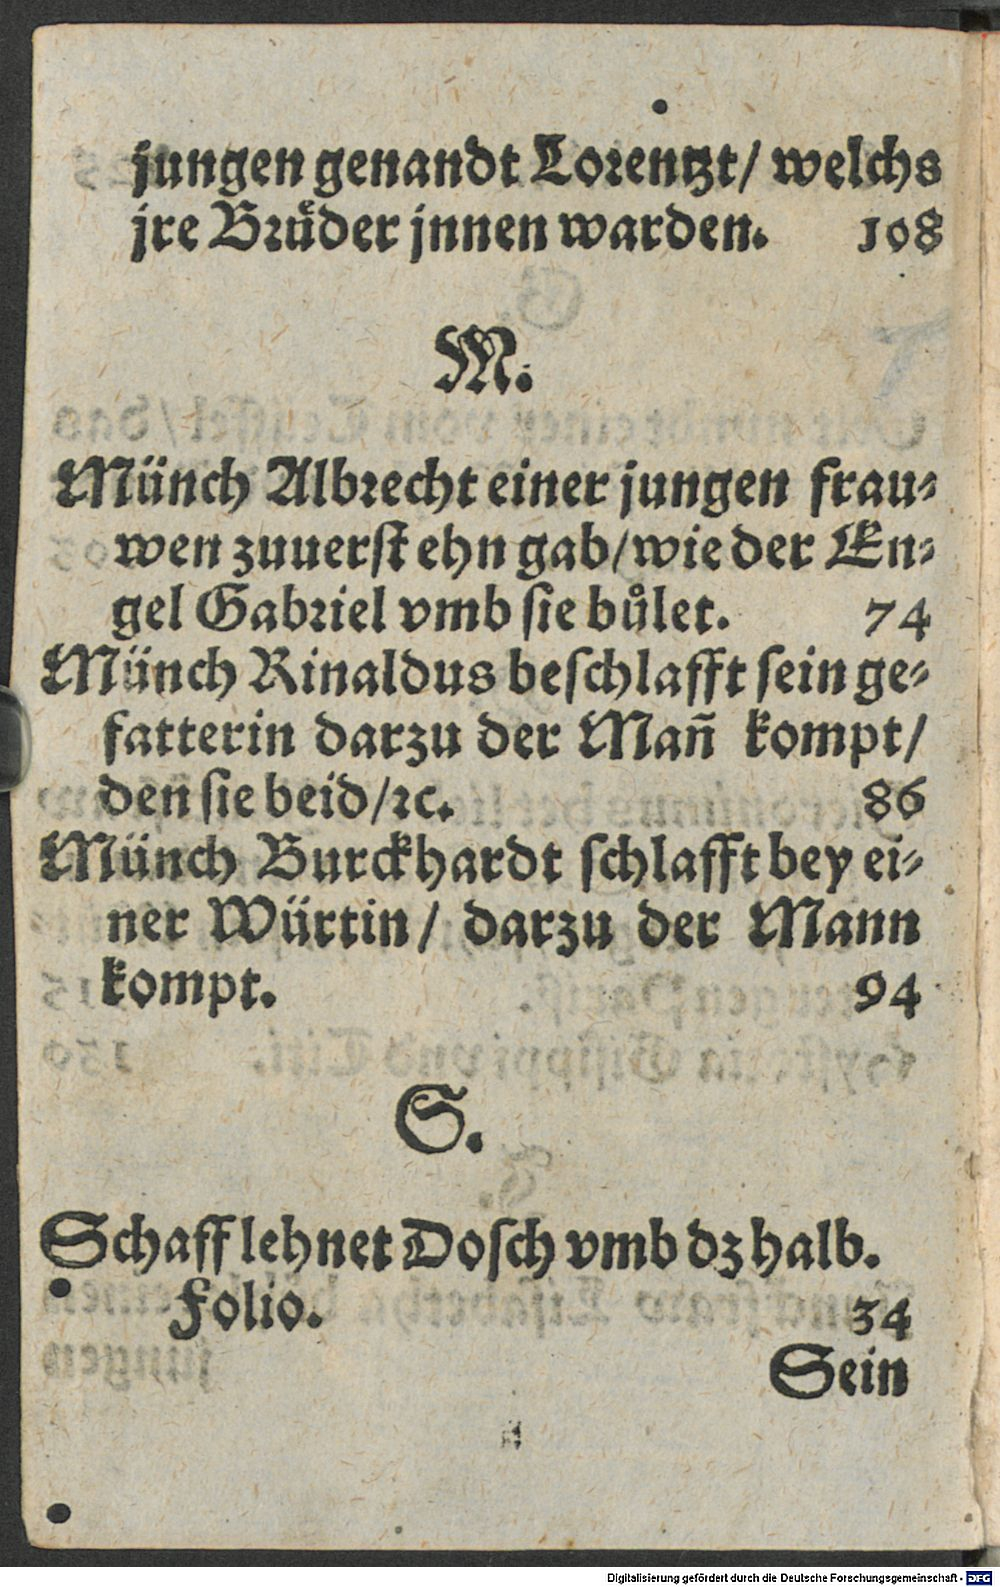 jungen genandt Lorentzt/ welchs
jre Bruͤder jnnen warden. 108
M.
Münch Albrecht einer jungen frau⸗
wen zuuerst ehn gab/wie der En⸗
gel Gabriel vmb sie bůlet. 74
Münch Rinaldus beschlafft sein ge⸗
fatterin darzu der Mañ kompt/
den sie beid/ꝛc. 86
Münch Burckhardt schlafft bey ei⸗
ner Würtin/ darzu der Mann
kompt. 94
S.
Schaff lehnet Dosch vmb dz halb.
Folio. 34
Sein
Digitalisierung gefördert durch die Deutsche Forschungsgemeinschaft - DFG